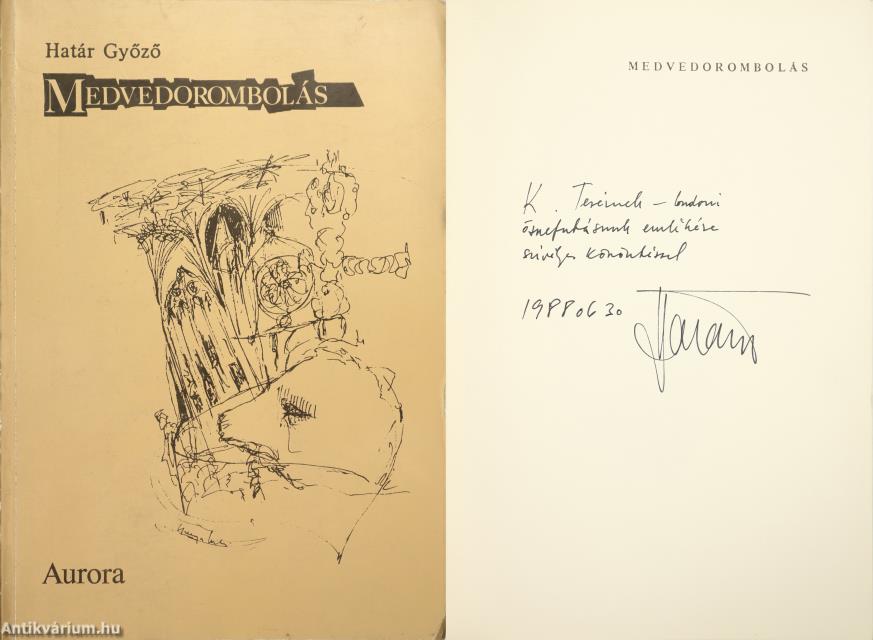 Határ Győző
MEDVEDOROMBOLÁS
Aurora
Antikvárium.hu
MEDVEDOROMBOLÁS
K. Terézinek – londoni
összefutásunk emlékére
szívélyes köszöntéssel
1988 06 30
Határ